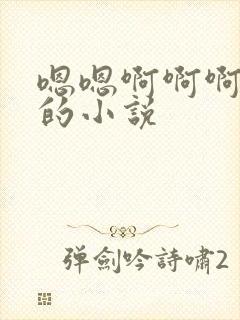 嗯嗯啊啊啊
的小说
弹劍吟詩嘯2